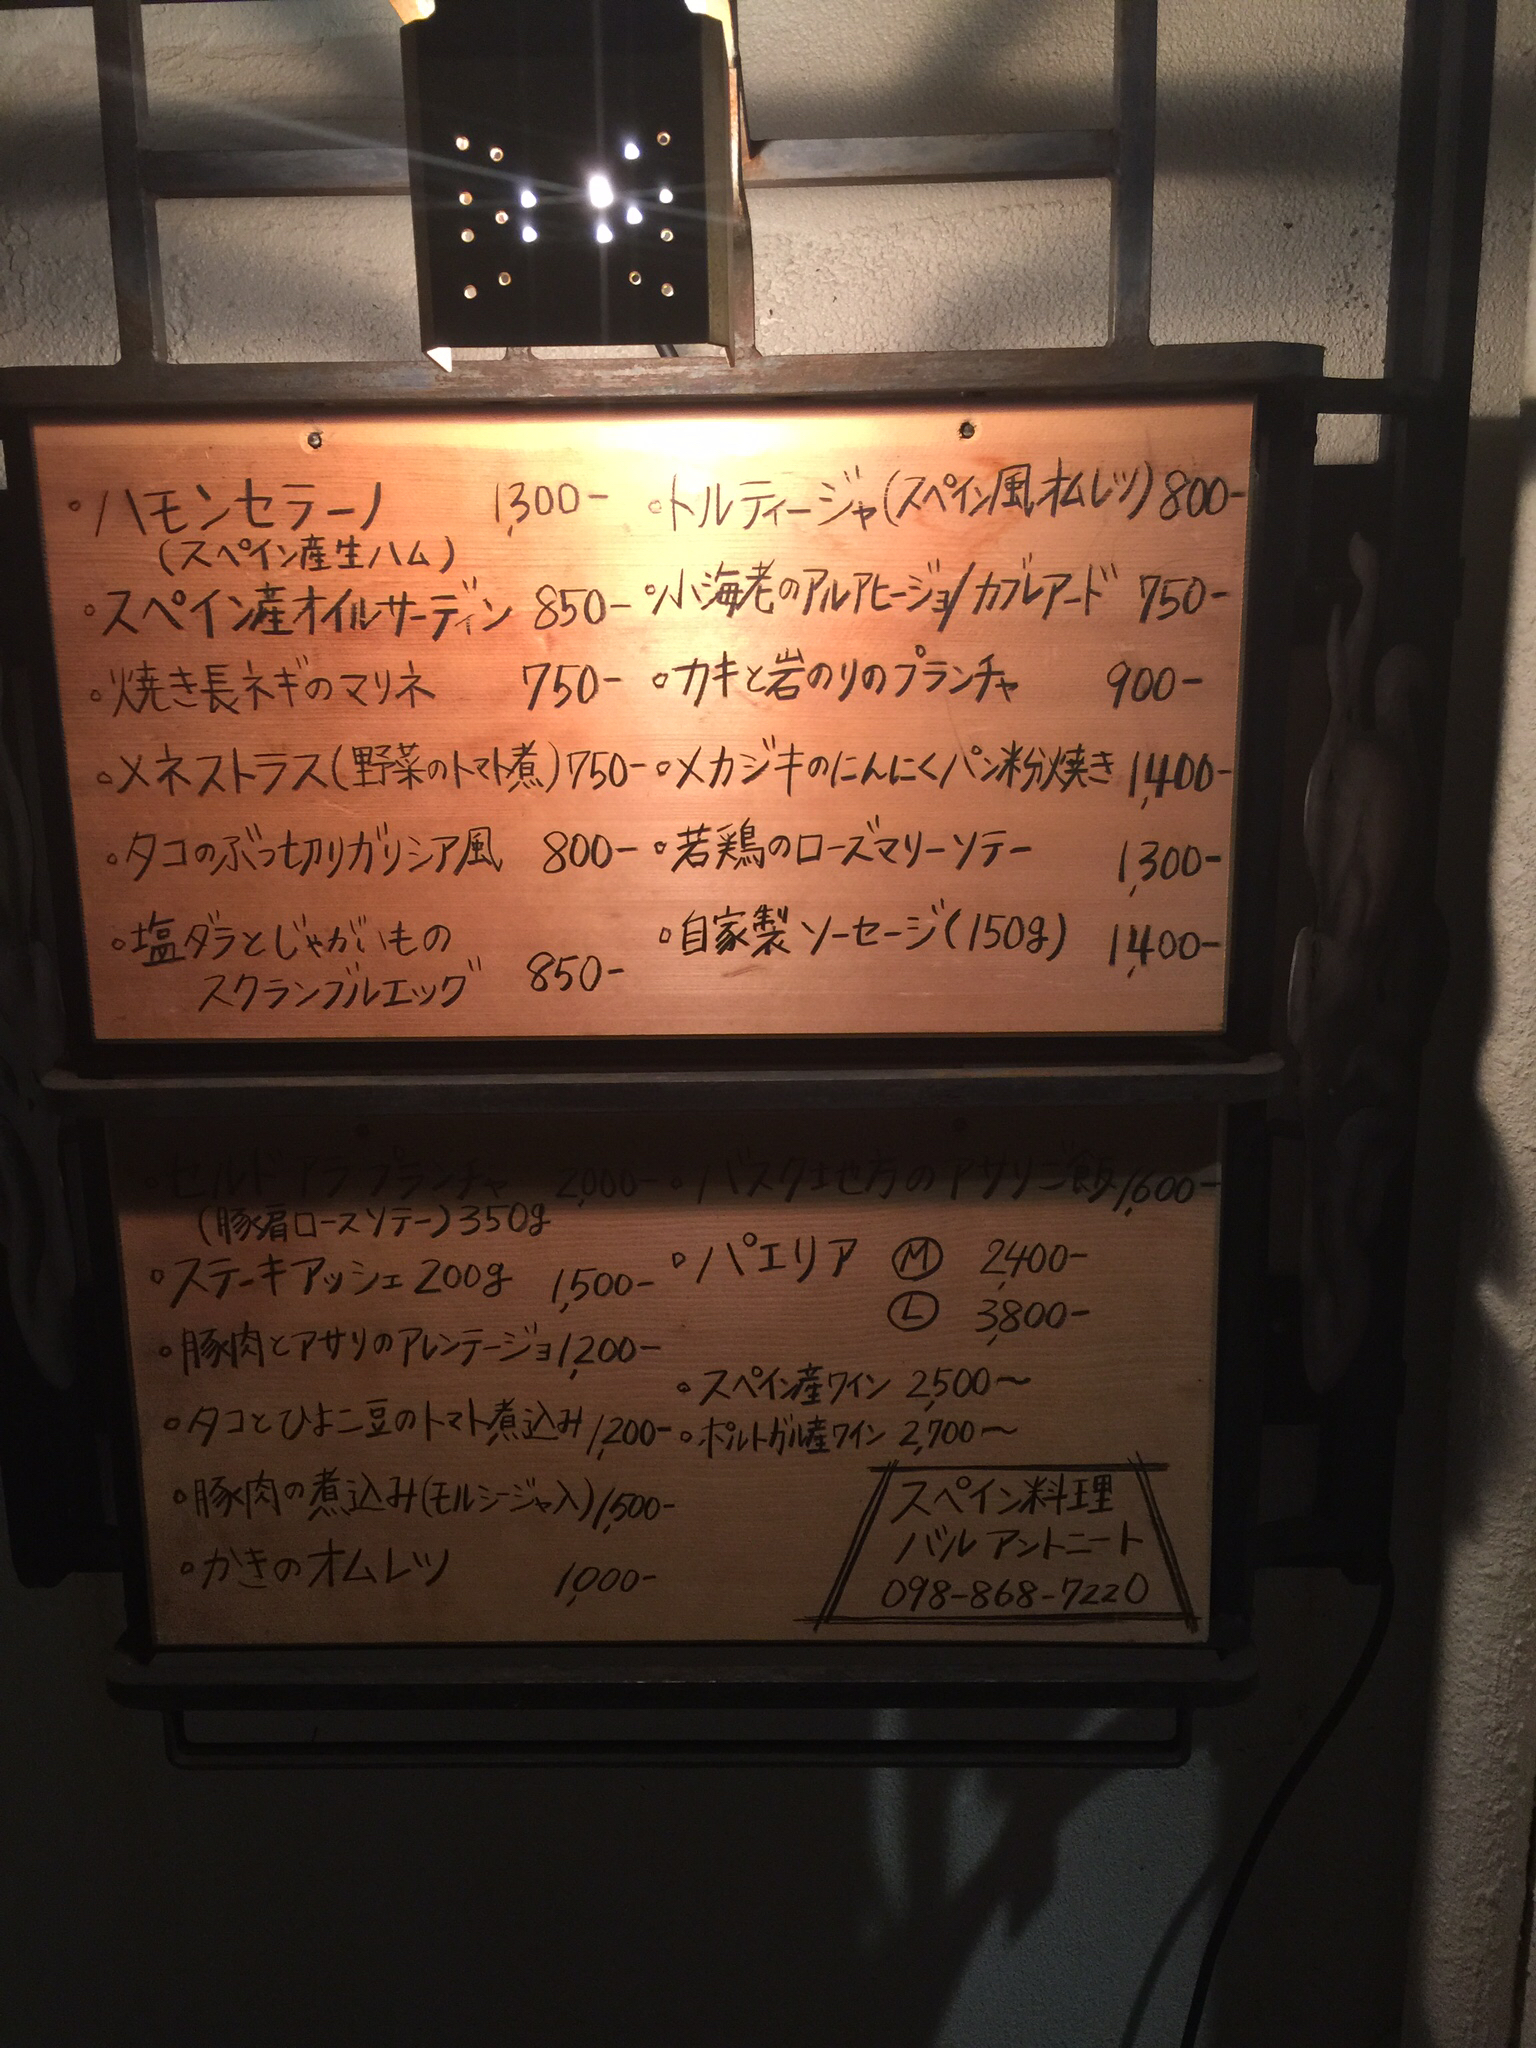 ・ハモンセラーノ 1,300-
(スペイン産生ハム)
・スペイン産オイルサーディン 850-
・焼き長ネギのマリネ 750-
・メネストラス(野菜のトマト煮) 750-
・タコのぶっ切りガリシア風 800-
・塩ダラとじゃがいもの
スクランブルエッグ 850-
・トルティージャ(スペイン風オムレツ) 800-
・小海老のアルアヒージョ/カブレアード 750-
・カキと岩のりのプランチャ 900-
・メカジキのにんにくパン粉焼き 1,400-
・若鶏のローズマリーソテー 1,300-
・自家製ソーセージ(150g) 1,400-
・セルド アラ プランチャ 2,000-
(豚肩ロースソテー)350g
・ステーキアッシェ200g 1,500-
・豚肉とアサリのアレンテージョ 1,200-
・タコとひよこ豆のトマト煮込み 1,200-
・豚肉の煮込み(モルシージャ入) 1,500-
・かきのオムレツ 1,000-
・バスク地方のアサリご飯 1,600-
・パエリア Ⓜ 2,400-
Ⓛ 3,800-
・スペイン産ワイン 2,500〜
・ポルトガル産ワイン 2,700〜
スペイン料理
バル アントニート
098-868-7220